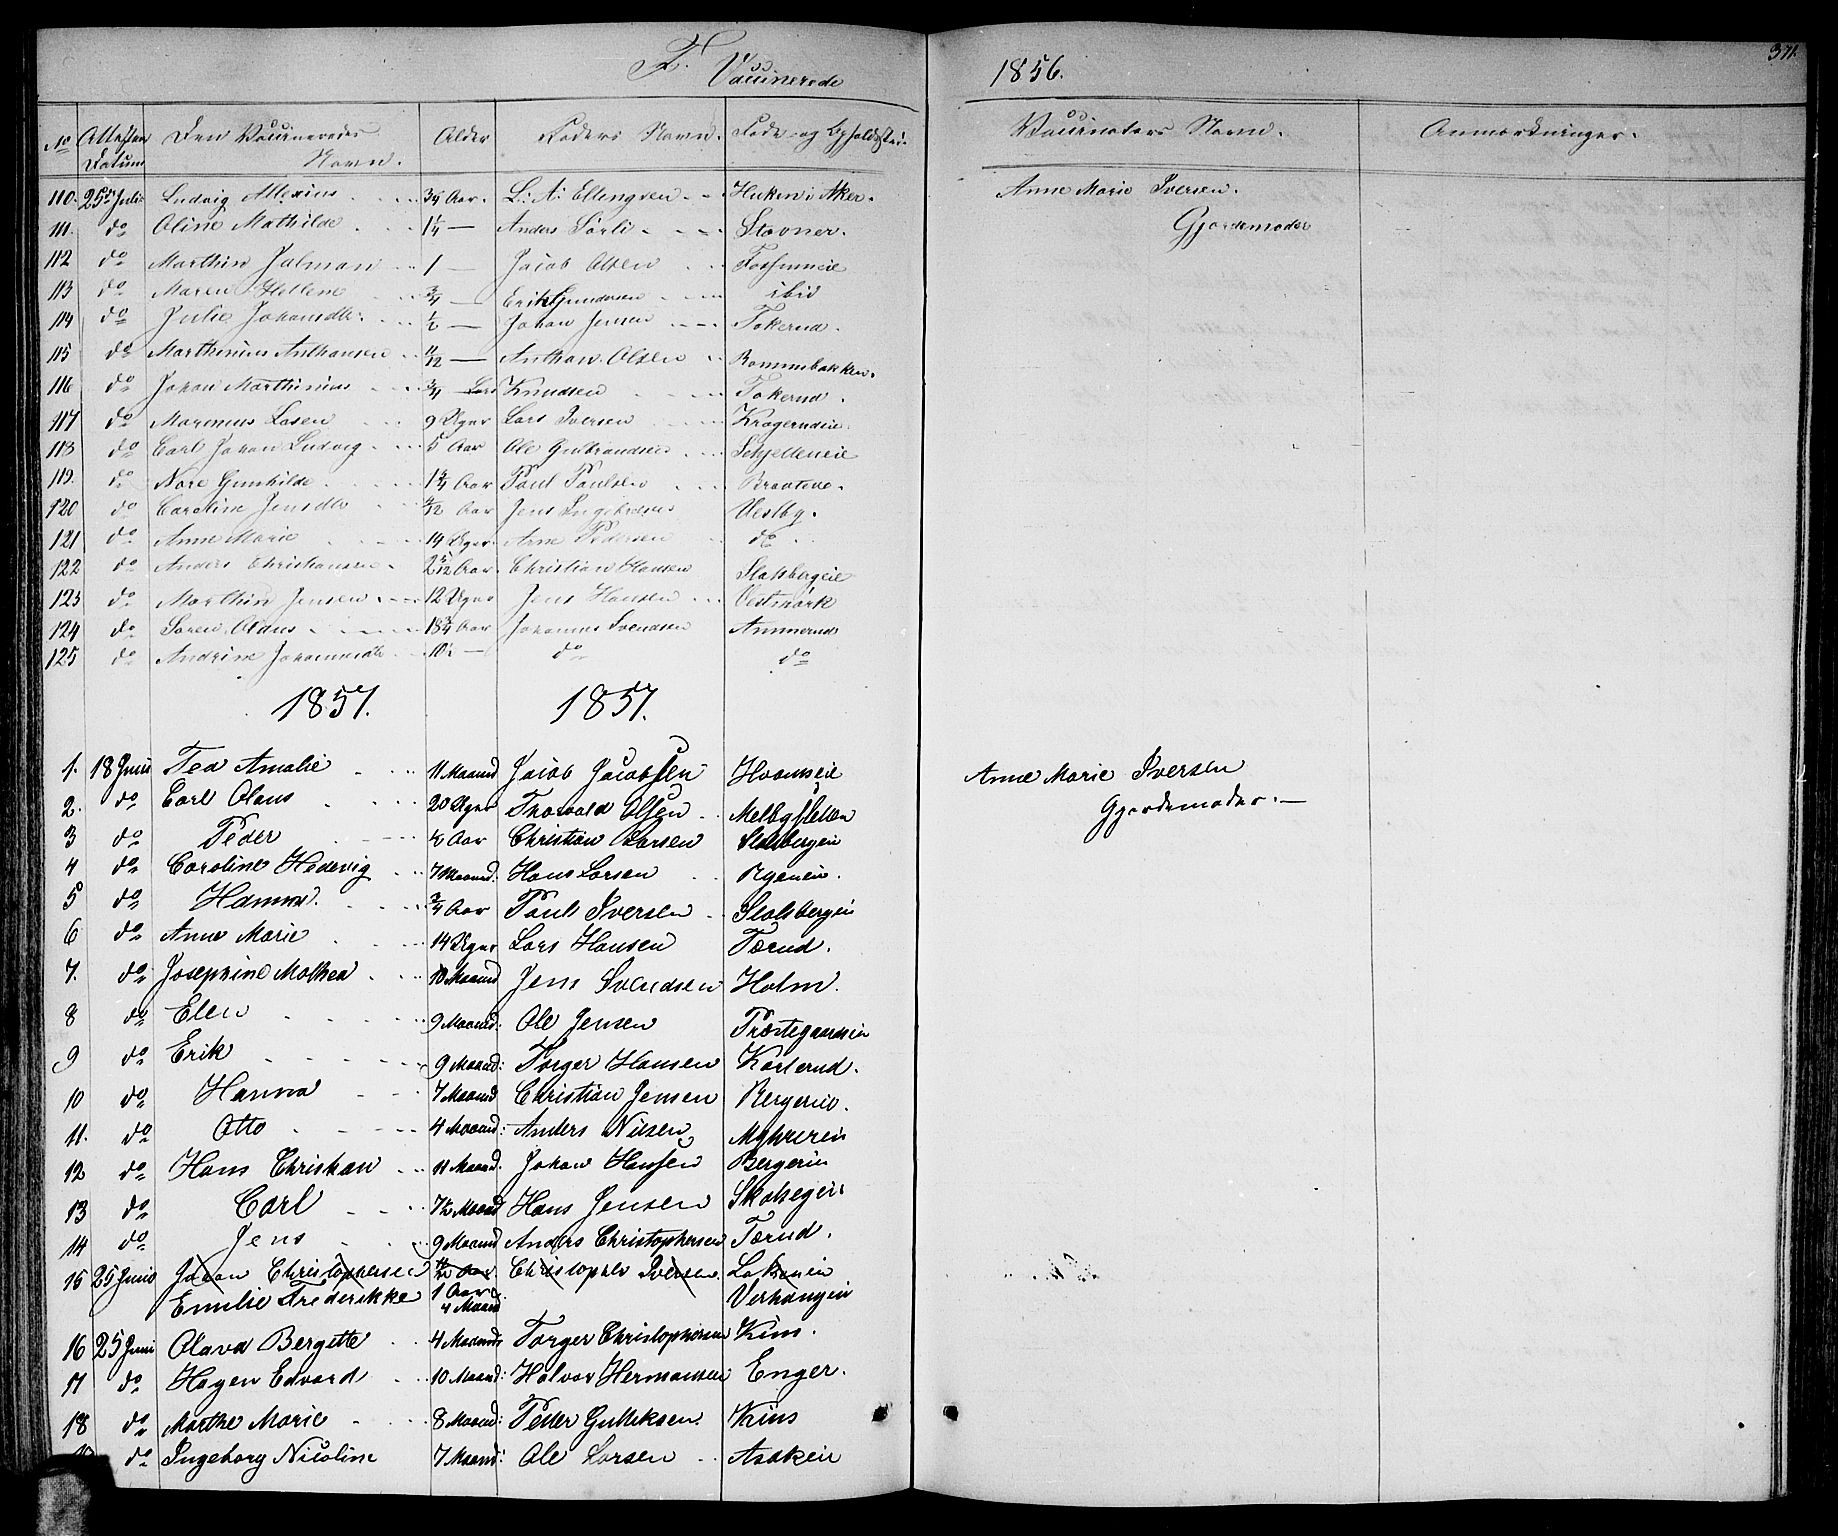 F. Vaccinerede
1856.
371.
No Attesten Datum Den Vaccineredes Navn. Alder Faders Navn. Føde- og Opholdssted.
Vaccinators Navn. Anmærkninger.
110. 25de Juli Ludvig Allexius 3/4 Aar. L: A: Ellengsen Huken i Aker.
Anne Marie Iversen.
Gjordemoder
111. do Oline Mathilde 1 1/4 — Anders Sørli Stovner.
112 do Marthin Jalman 1 — Jacob Olsen Fossumeie
113 do Maren Hellene 3/4 — Erik Gundersen ibid
114 do Julie Johansdtr. 1/2 — Johan Jensen Tokerud.
115 do Marthinius Anthonsen 11/12 — Anthon Olsen Rommebakken.
116 do Johan Marthinius 3/4 — Lars Knudsen Tokerud.
117 do Marinius Lasen 9 Uger Lars Iversen Krogerudeie
118 do Carl Johan Ludvig 5 Aar Ole Gulbrandsen Schjetteneie
119. do Nore Gunhilde 1 3/4 Aar Poul Poulsen Braatene.
120 do Caroline Jensdtr Aar Jens Ingebretsen Vestby.
121 do Anne Marie 14 Uger. Arne Pedersen do
122 do Anders Christiansen 2 5/12 Aar. Christian Hansen Stalsbergeie
123 do Marthin Jensen 12 Uger Jens Hansen Vestmork
124 do Søren Olaus 13 3/4 Aar Johannes Svendsen Ammerud
125 do Andrine Johannesdtr 10 1/2 — do do
1857. 1857.
1. 18 Juni Tea Amalie 11 Maaned Jacob Jacobsen Hvamseie
Anne Marie Iversen
Gjordemoder. —
2. do Carl Olaus 20 Uger Thorvald Olsen Melbysletten
3 do Peder 1/2 Aar Christian Larsen Stalsbergeie
4 do Caroline Hedevig 7 Maaned: Hans Larsen Ryeneie.
5 do Hanna. 3/4 Aar Paul Iversen Stalsbergeie
6 do Anne Marie 14 Uger Lars Hansen Tærud.
7. do Josephine Mathea 10 Maaned Jens Svendsen Holm.
8 do Elen 9 Maaned: Ole Jensen Præstegaardseie
9 do Erik 9 Maaned: Torger Hansen Karlerud.
10 do Hanna 7 Maaned Christian Jensen Bergereie.
11. do Otto 4 Maaned: Anders Nilsen Myhrereie
12 do Hans Christian 11 Maaned. Johan Hansen Bergereie
13 do Carl 7 1/2 Maaned Hans Jensen
14 do Jens 9 Maaned Anders Christophersen Tærud.
15 25 Junio Johan Christophersen Aar. Christopher Iversen.
Emilie Frederikke 1 Aar 4 Maaned Verhaugeie
16 25 Juni Olava Bergitte 4 Maaneds Torger Christophersen Kius.
17 do Hagen Edvard 10 Maaned: Halvor Hermansen Enger.
18 do Marthe Marie 8 Maaned: Peder Gulliksen Kius
do Ingeborg Nicoline 7 Maaned: Ole Larsen Asakeie